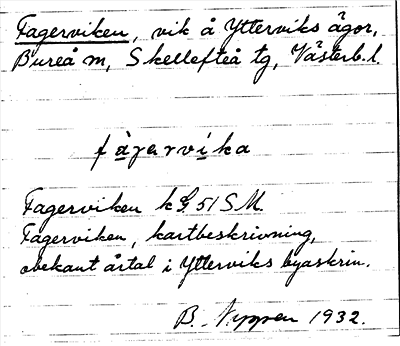 Fagerviken, vik å Ytterviks ägor,
Bureå m, Skellefteå tg, Västerb. l.
fàgərvìka
Fagerviken k 51 SM
Fagerviken, kartbeskrivning,
obekant årtal i Ytterviks byaskrin.
B. 1932.